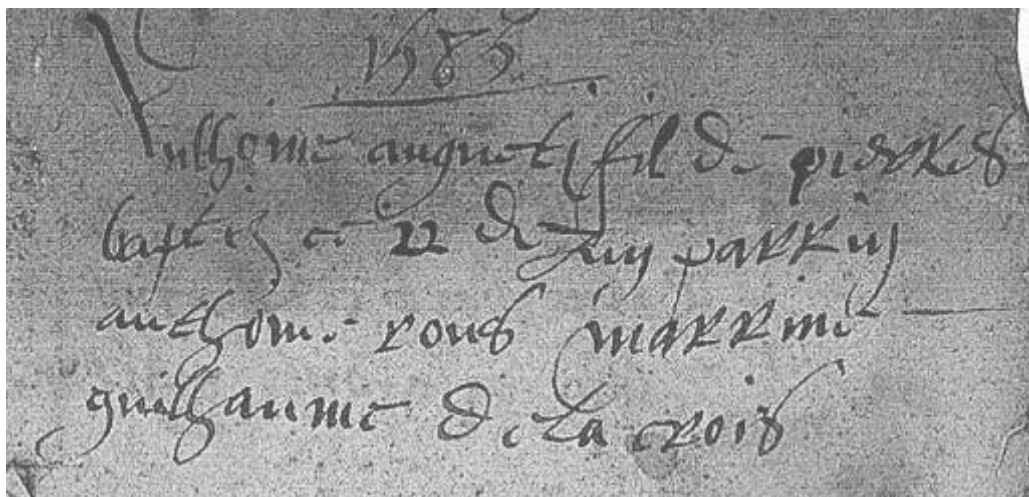 1585
Anthoine auguet fil de pierres
baptiz ce 22 de Juin parrin
anthoine rous marrine
guilhaume de la crois